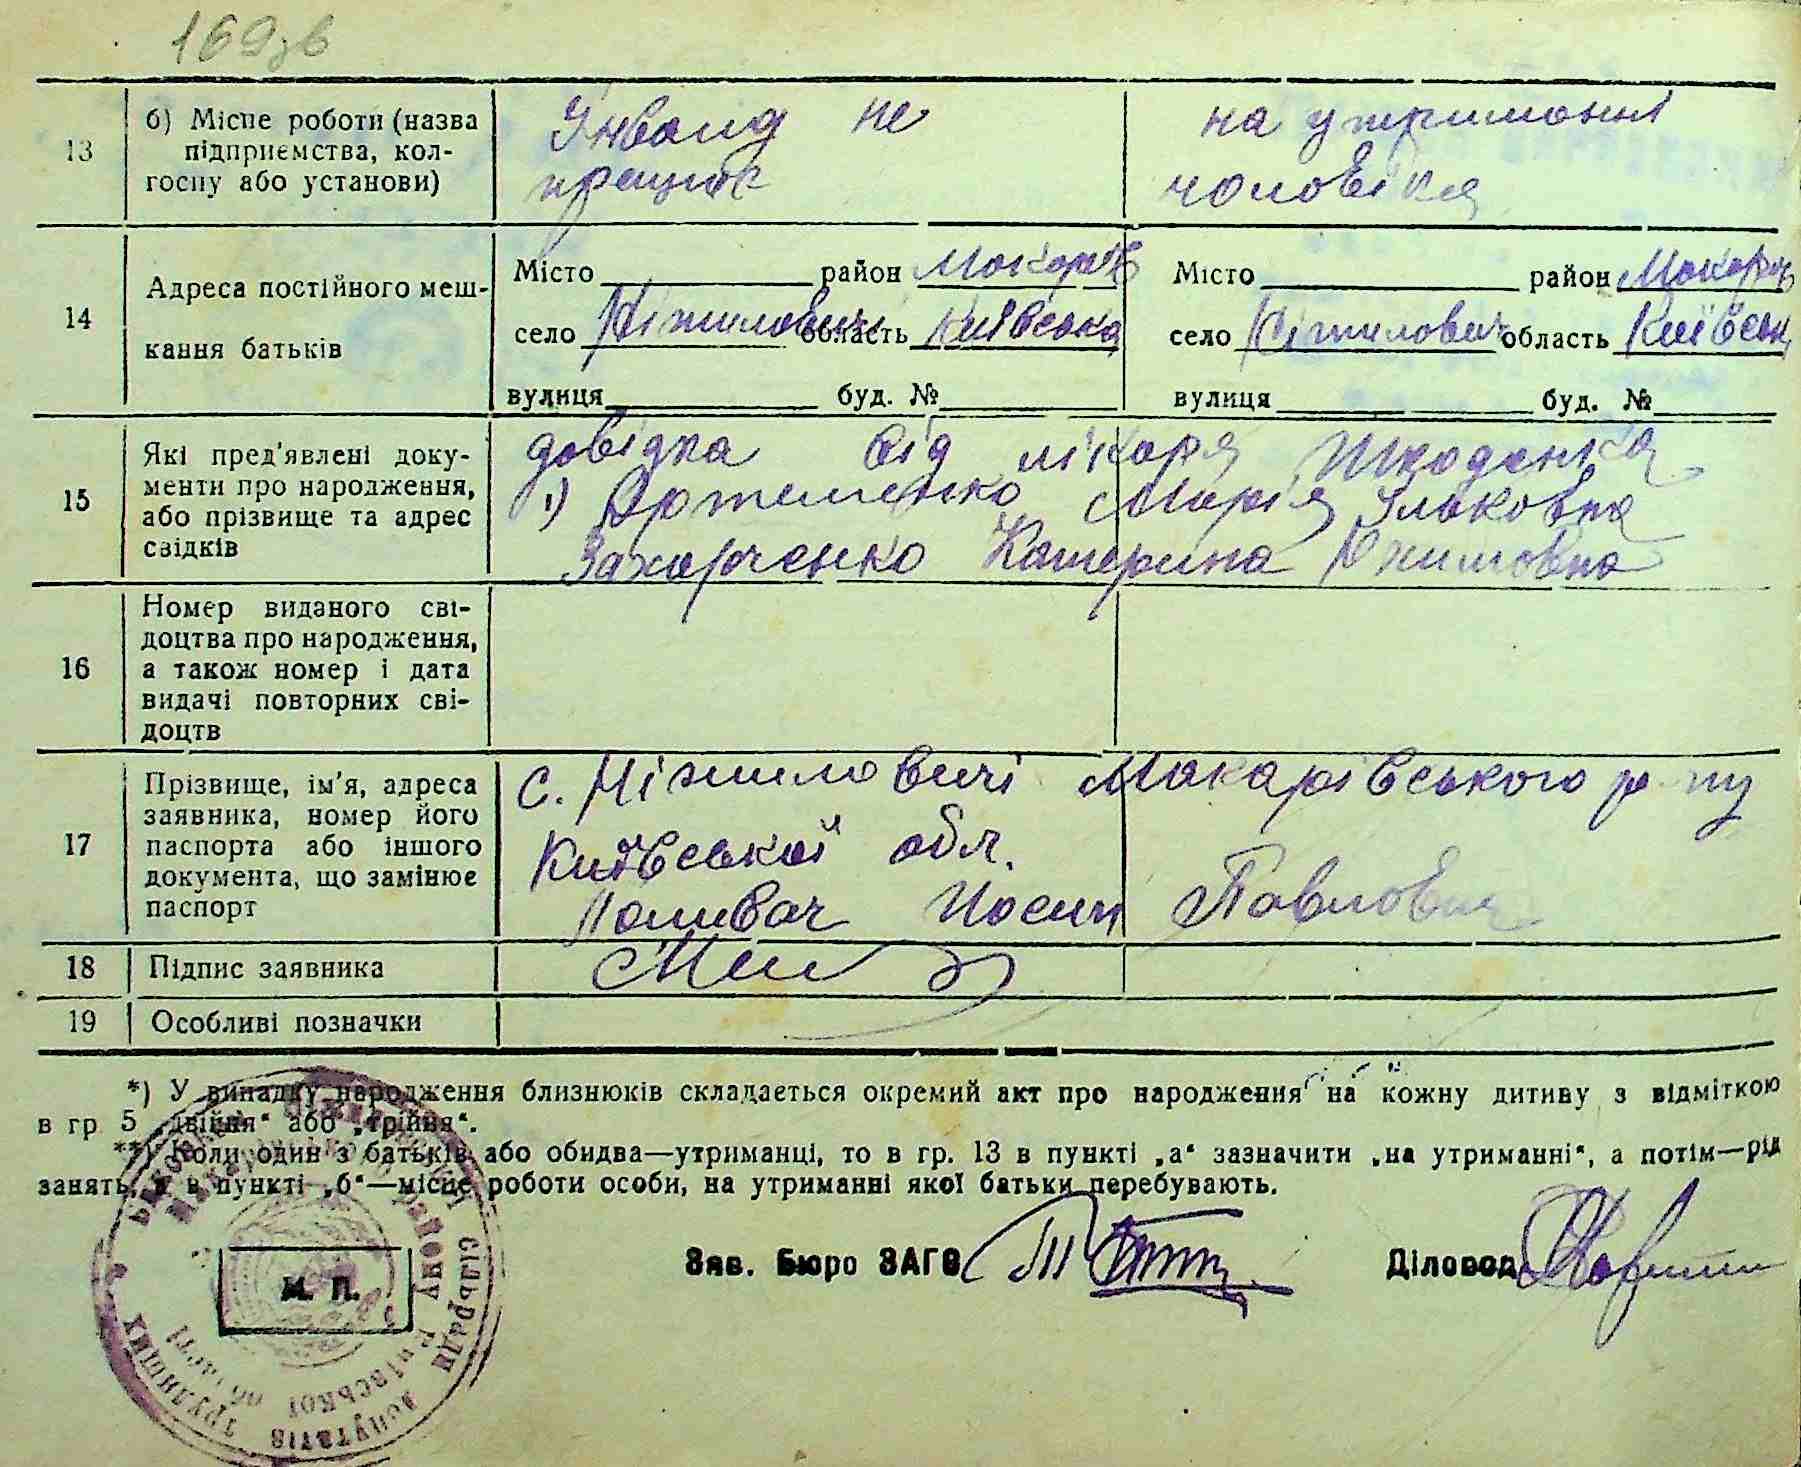 169зв
13 б) Місце роботи (назва підприємства, колгоспу або установи)
Інвалід не
працює
на утриманні
чоловіка
14 Адреса постійного мешкання батьків
Місто район Макарів
село Ніжиловичі область Київська
вулиця буд. №
Місто район Макарів
село Ніжилович область Київськ
вулиця буд. №
15 Які пред'явлені документи про народження, або прізвище та адрес свідків
довідка від лікаря
1) Артеменко Марія Ільковна
Захарченко Катерина Юхимовна
16 Номер виданого свідоцтва про народження, а також номер і дата видачі повторних свідоцтв
17 Прізвище, ім'я, адреса заявника, номер його паспорта або іншого документа, що замінює паспорт
с. Ніжиловичі Макарівського р-ну
Київської обл.
Поливач Йосип Павлович
18 Підпис заявника
19 Особливі позначки
*) У випадку народження близнюків складається окремий акт про народження на кожну дитину з відміткою
в гр 5 „двійня“ або „трійня“.
**) Коли один з батьків або обидва—утриманці, то в гр. 13 в пункті „а“ зазначити „на утриманні“, а потім—рід
занять, а в пункті „б“—місце роботи особи, на утриманні якої батьки перебувають.
Зав. Бюро ЗАГС
Діловод
М. П.
сільради
депутатів
трудящих
Макарівського району
Київської
області